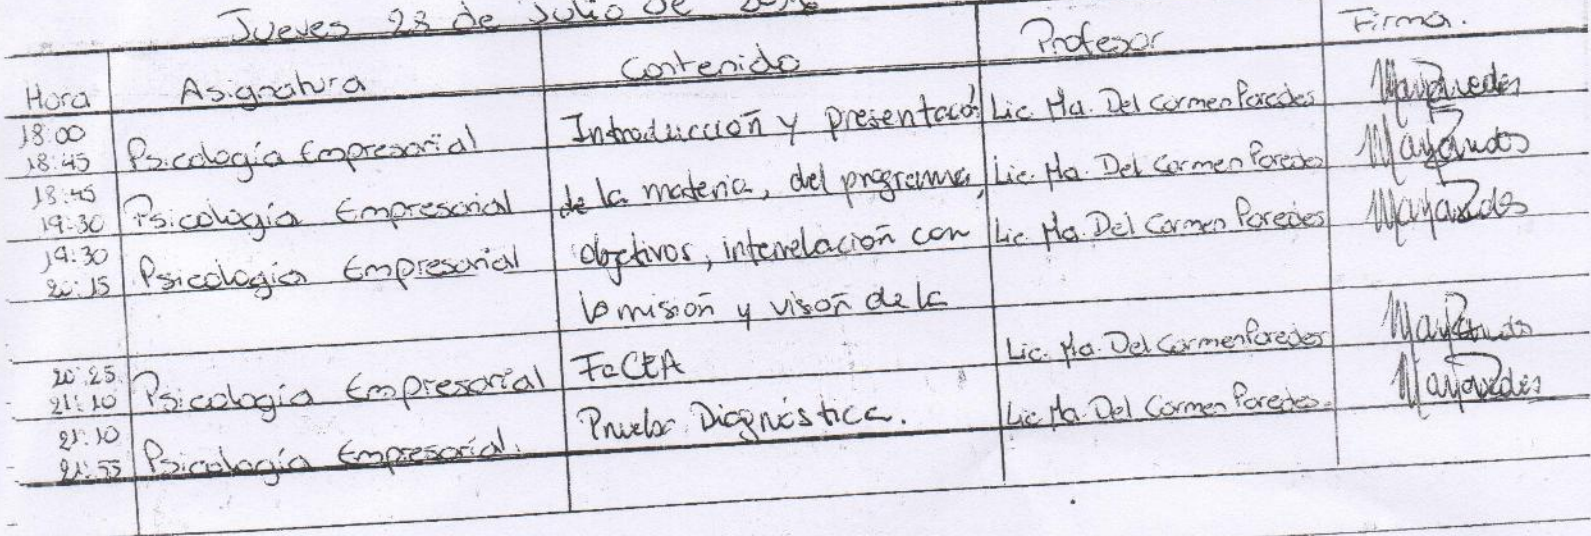 Jueves 28 de Julio de
Hora Asignatura Contenido Profesor Firma.
18:00
18:45 Psicología Empresarial Introducción y presentació Lic. Ma. Del Carmen Paredes
18:45
19:30 Psicología Empresarial de la materia, del programa, Lic. Ma. Del Carmen Paredes
19:30
20:15 Psicología Empresarial objetivos, interrelación con Lic. Ma. Del Carmen Paredes
la misión y visión de la
20:25
21:10 Psicología Empresarial FaCEA Lic. Ma. Del Carmen Paredes
21:10
21:55 Psicología Empresarial. Prueba Diagnóstica. Lic. Ma. Del Carmen Paredes.